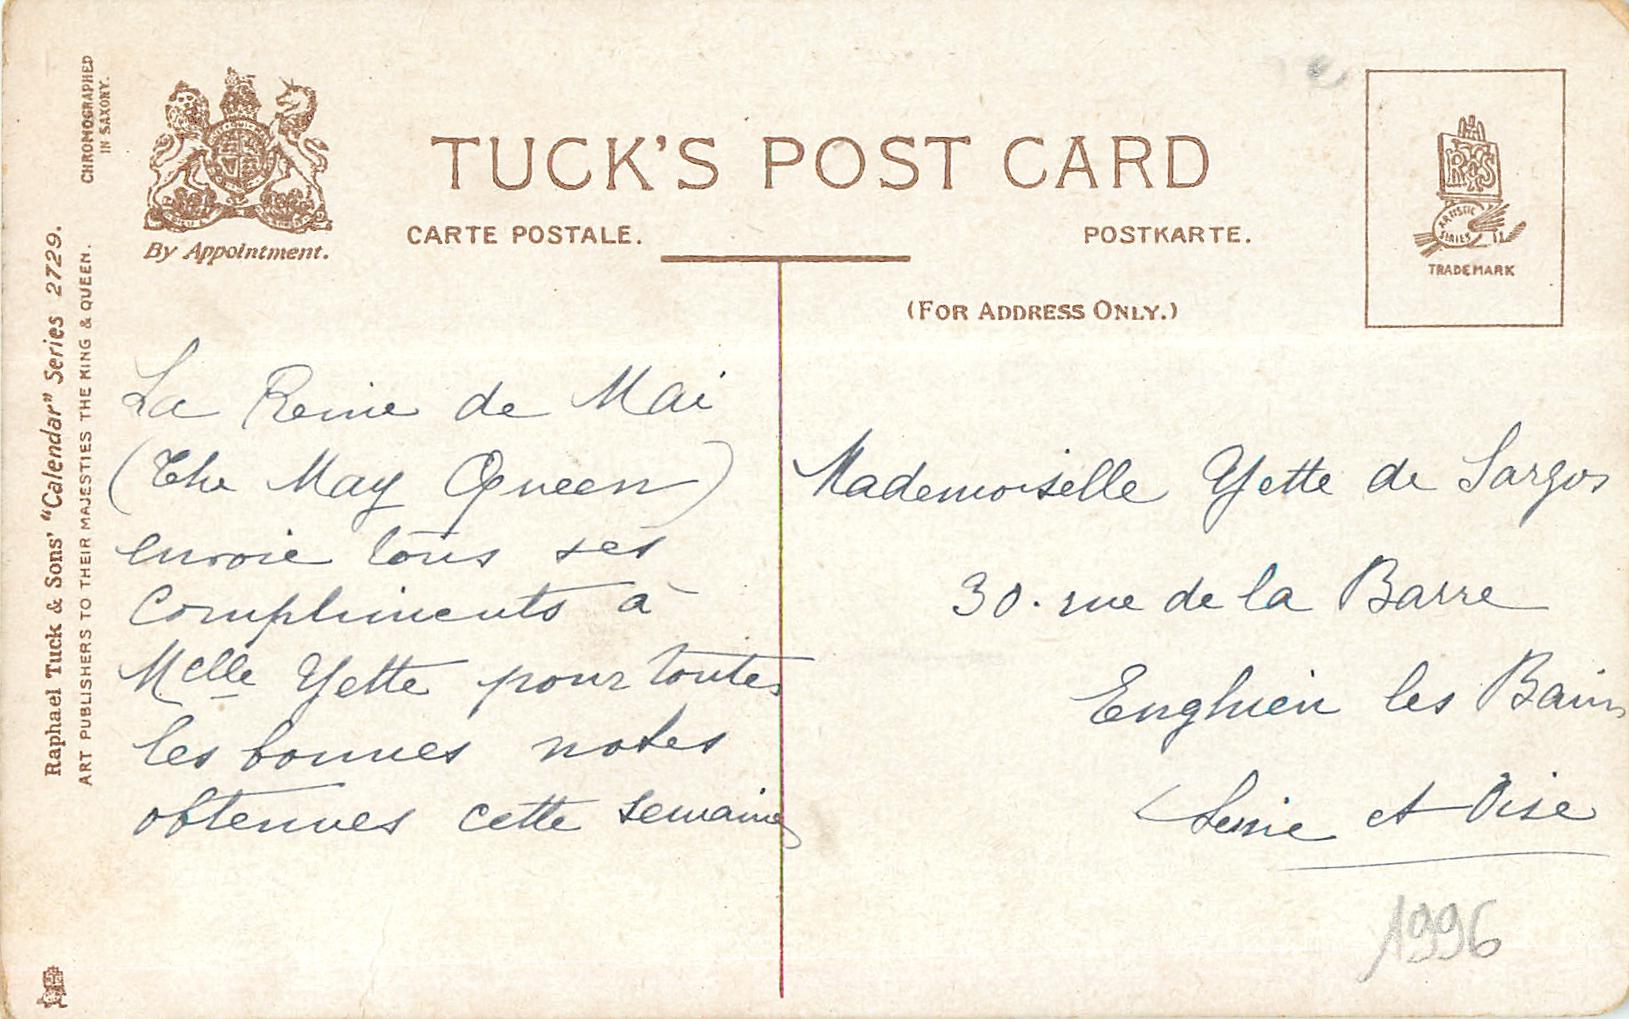 CHROMOGRAPHED
IN SAXONY.
Raphael Tuck & Sons' "Calendar" Series 2729.
ART PUBLISHERS TO THEIR MAJESTIES THE KING & QUEEN.
By Appointment.
TUCK'S POST CARD
CARTE POSTALE.
POSTKARTE.
(FOR ADDRESS ONLY.)
RTS
ARTISTIC
SERIES
TRADEMARK
La Reine de Mai
(The May Queen)
envoie tous ses
compliments à
Melle Yette pour toutes
les bonnes notes
obtenues cette semaine
Mademoiselle Yette de Sargos
30. rue de la Barre
Enghien les Bains
Seine et Oise
1996